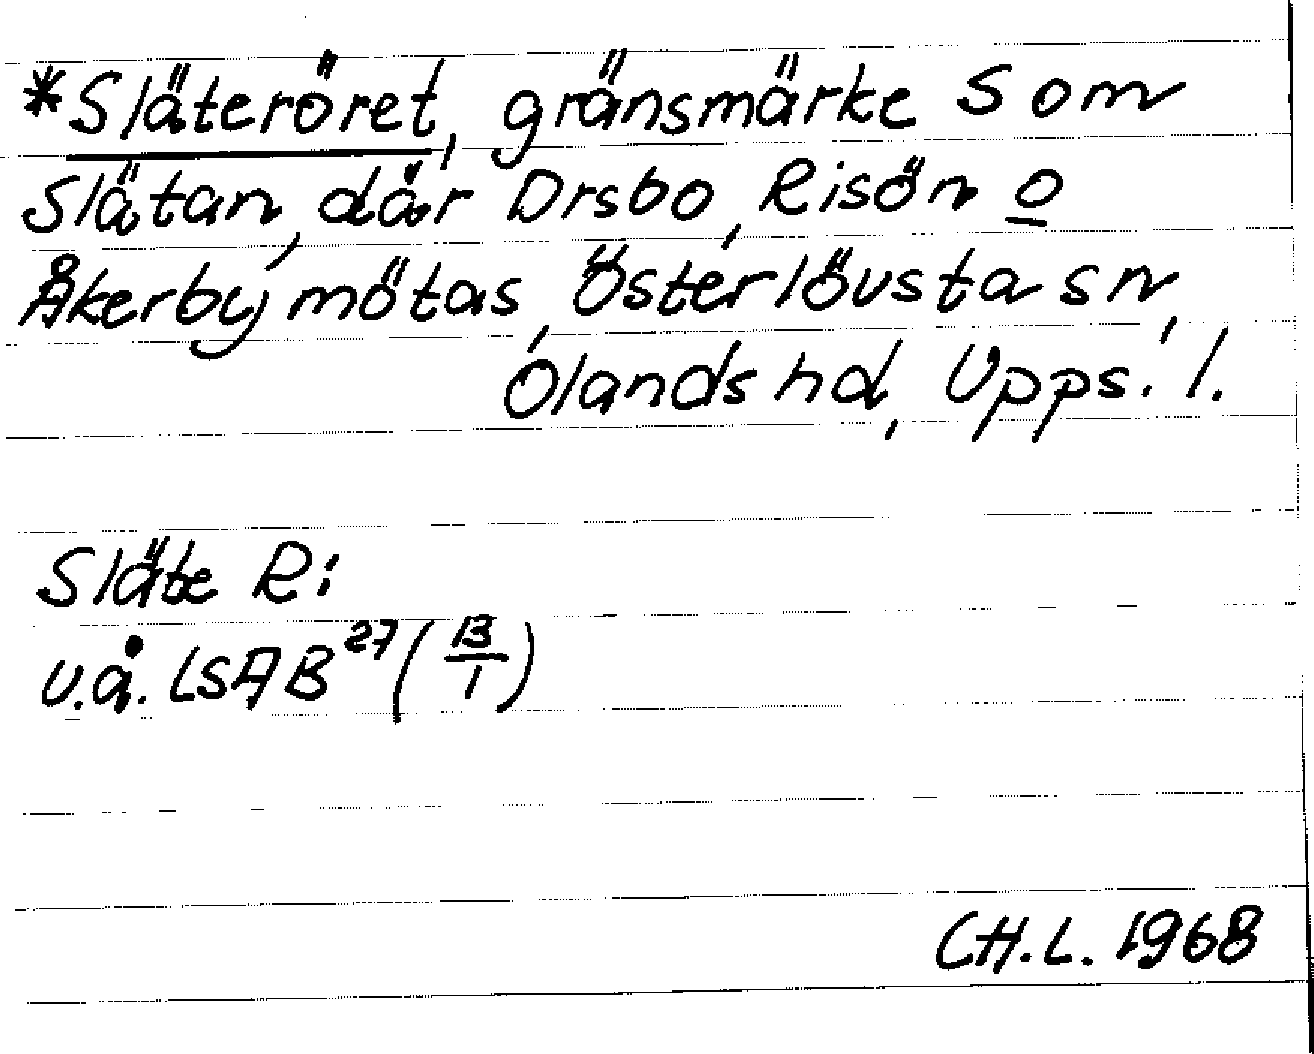 *Släteröret, gränsmärke S om
Slätan, där Orsbo, Risön o
Åkerby mötas, Österlövsta sn,
Ölands hd, Upps. l.
Släte R:
u.å. LSA B 27 (13/1)
CH.L. 1968